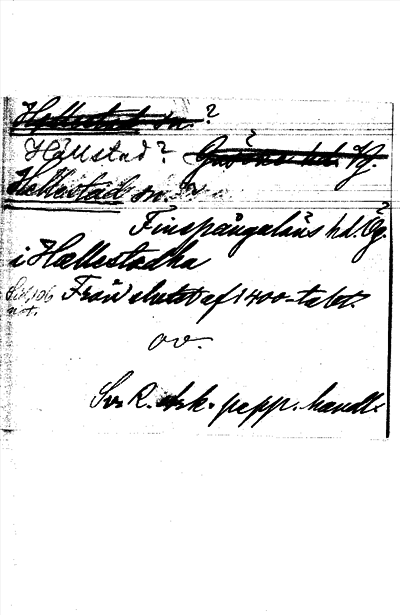 Hellestad sn. ?
Hällstad? Gäsene hd. Vg.
Hellestad sn.
Finspångaläns hd. Ög.
i Hællestadha
Från slutet af 1400-talet.
ov.
Sv. R. Ark. papp. handl.